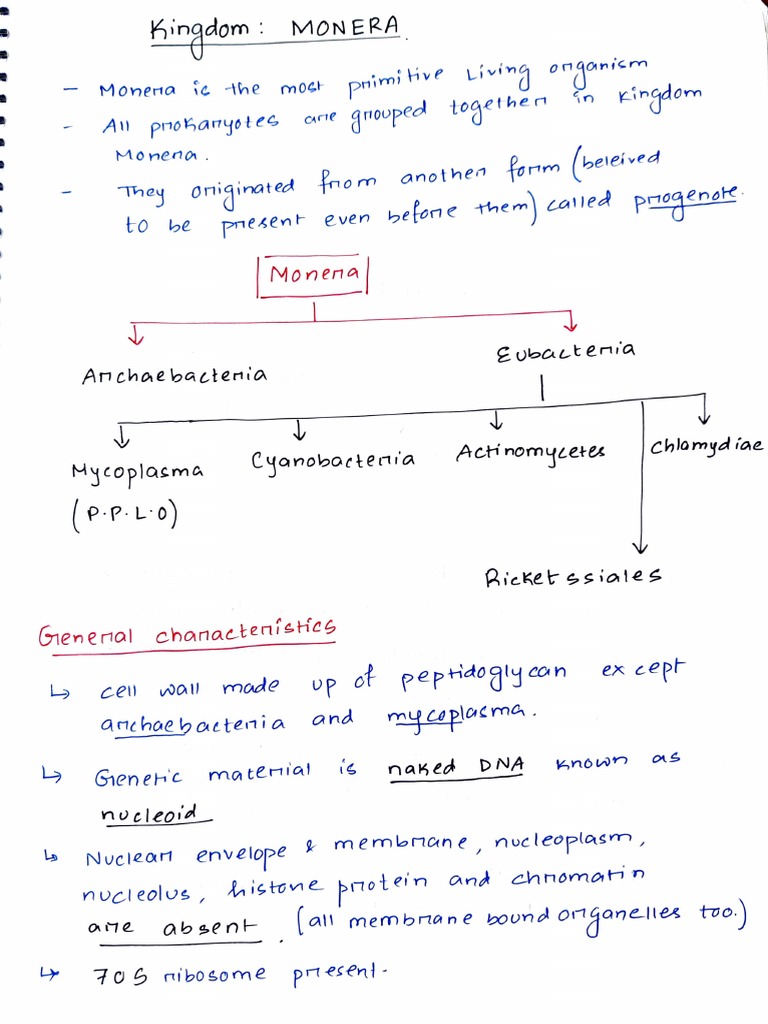 Kingdom: MONERA
- Monera is the most primitive Living organism
- All prokaryotes are grouped together in Kingdom
Monera.
- They originated from another form (beleived
to be present even before them) called progenote.
Monera
Archaebacteria
Eubacteria
Mycoplasma
(P.P.L.O)
Cyanobacteria
Actinomycetes
Chlamydiae
Ricketssiales
General characteristics
↳ cell wall made up of peptidoglycan except
archaebacteria and mycoplasma.
↳ Genetic material is naked DNA known as
nucleoid
↳ Nuclear envelope & membrane, nucleoplasm,
nucleolus, histone protein and chromatin
are absent. (all membrane bound organelles too.)
↳ 70S ribosome present.